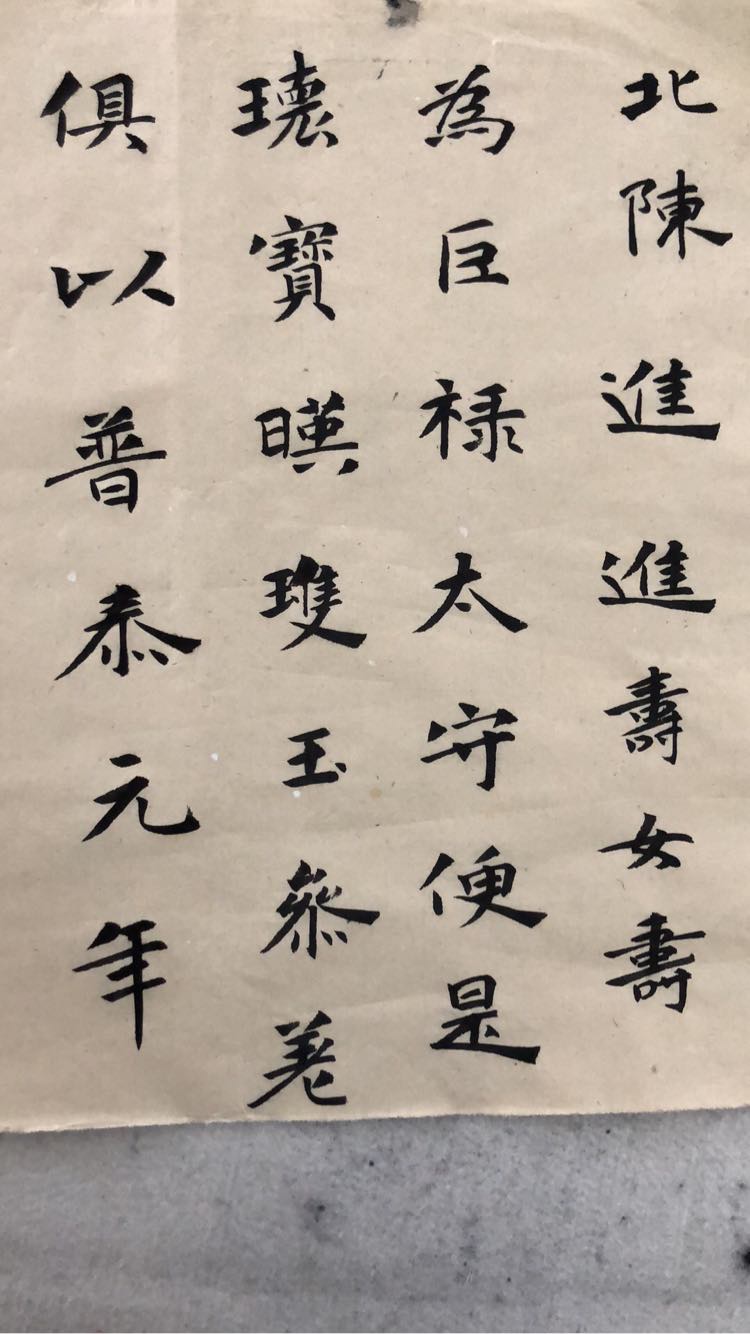 北陳進進壽女壽
為巨禄太守便是
瓌寶暎雙玉叅差
俱以普泰元年